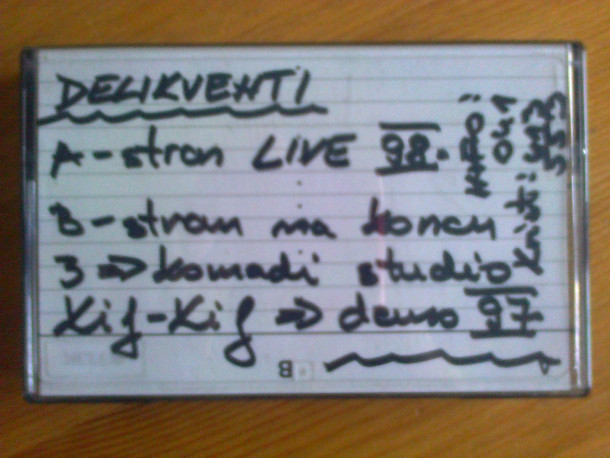 DELIKVENTI
A-stran LIVE 98.
B-stran na koncu
3 ⇒ komadi studio
Kif-Kif ⇒ demo 97
INFO:
041
B